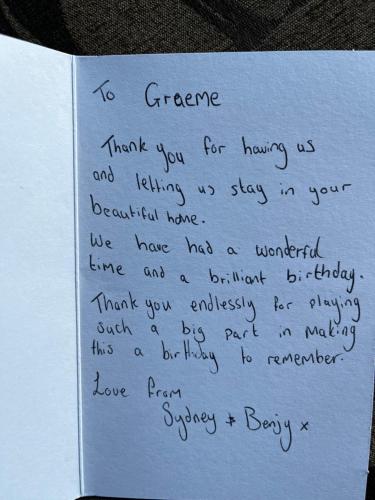 To Graeme
Thank you for having us
and letting us stay in your
beautiful home.
We have had a wonderful
time and a brilliant birthday.
Thank you endlessly for playing
such a big part in making
this a birthday to remember.
Love from
Sydney & Benjy x